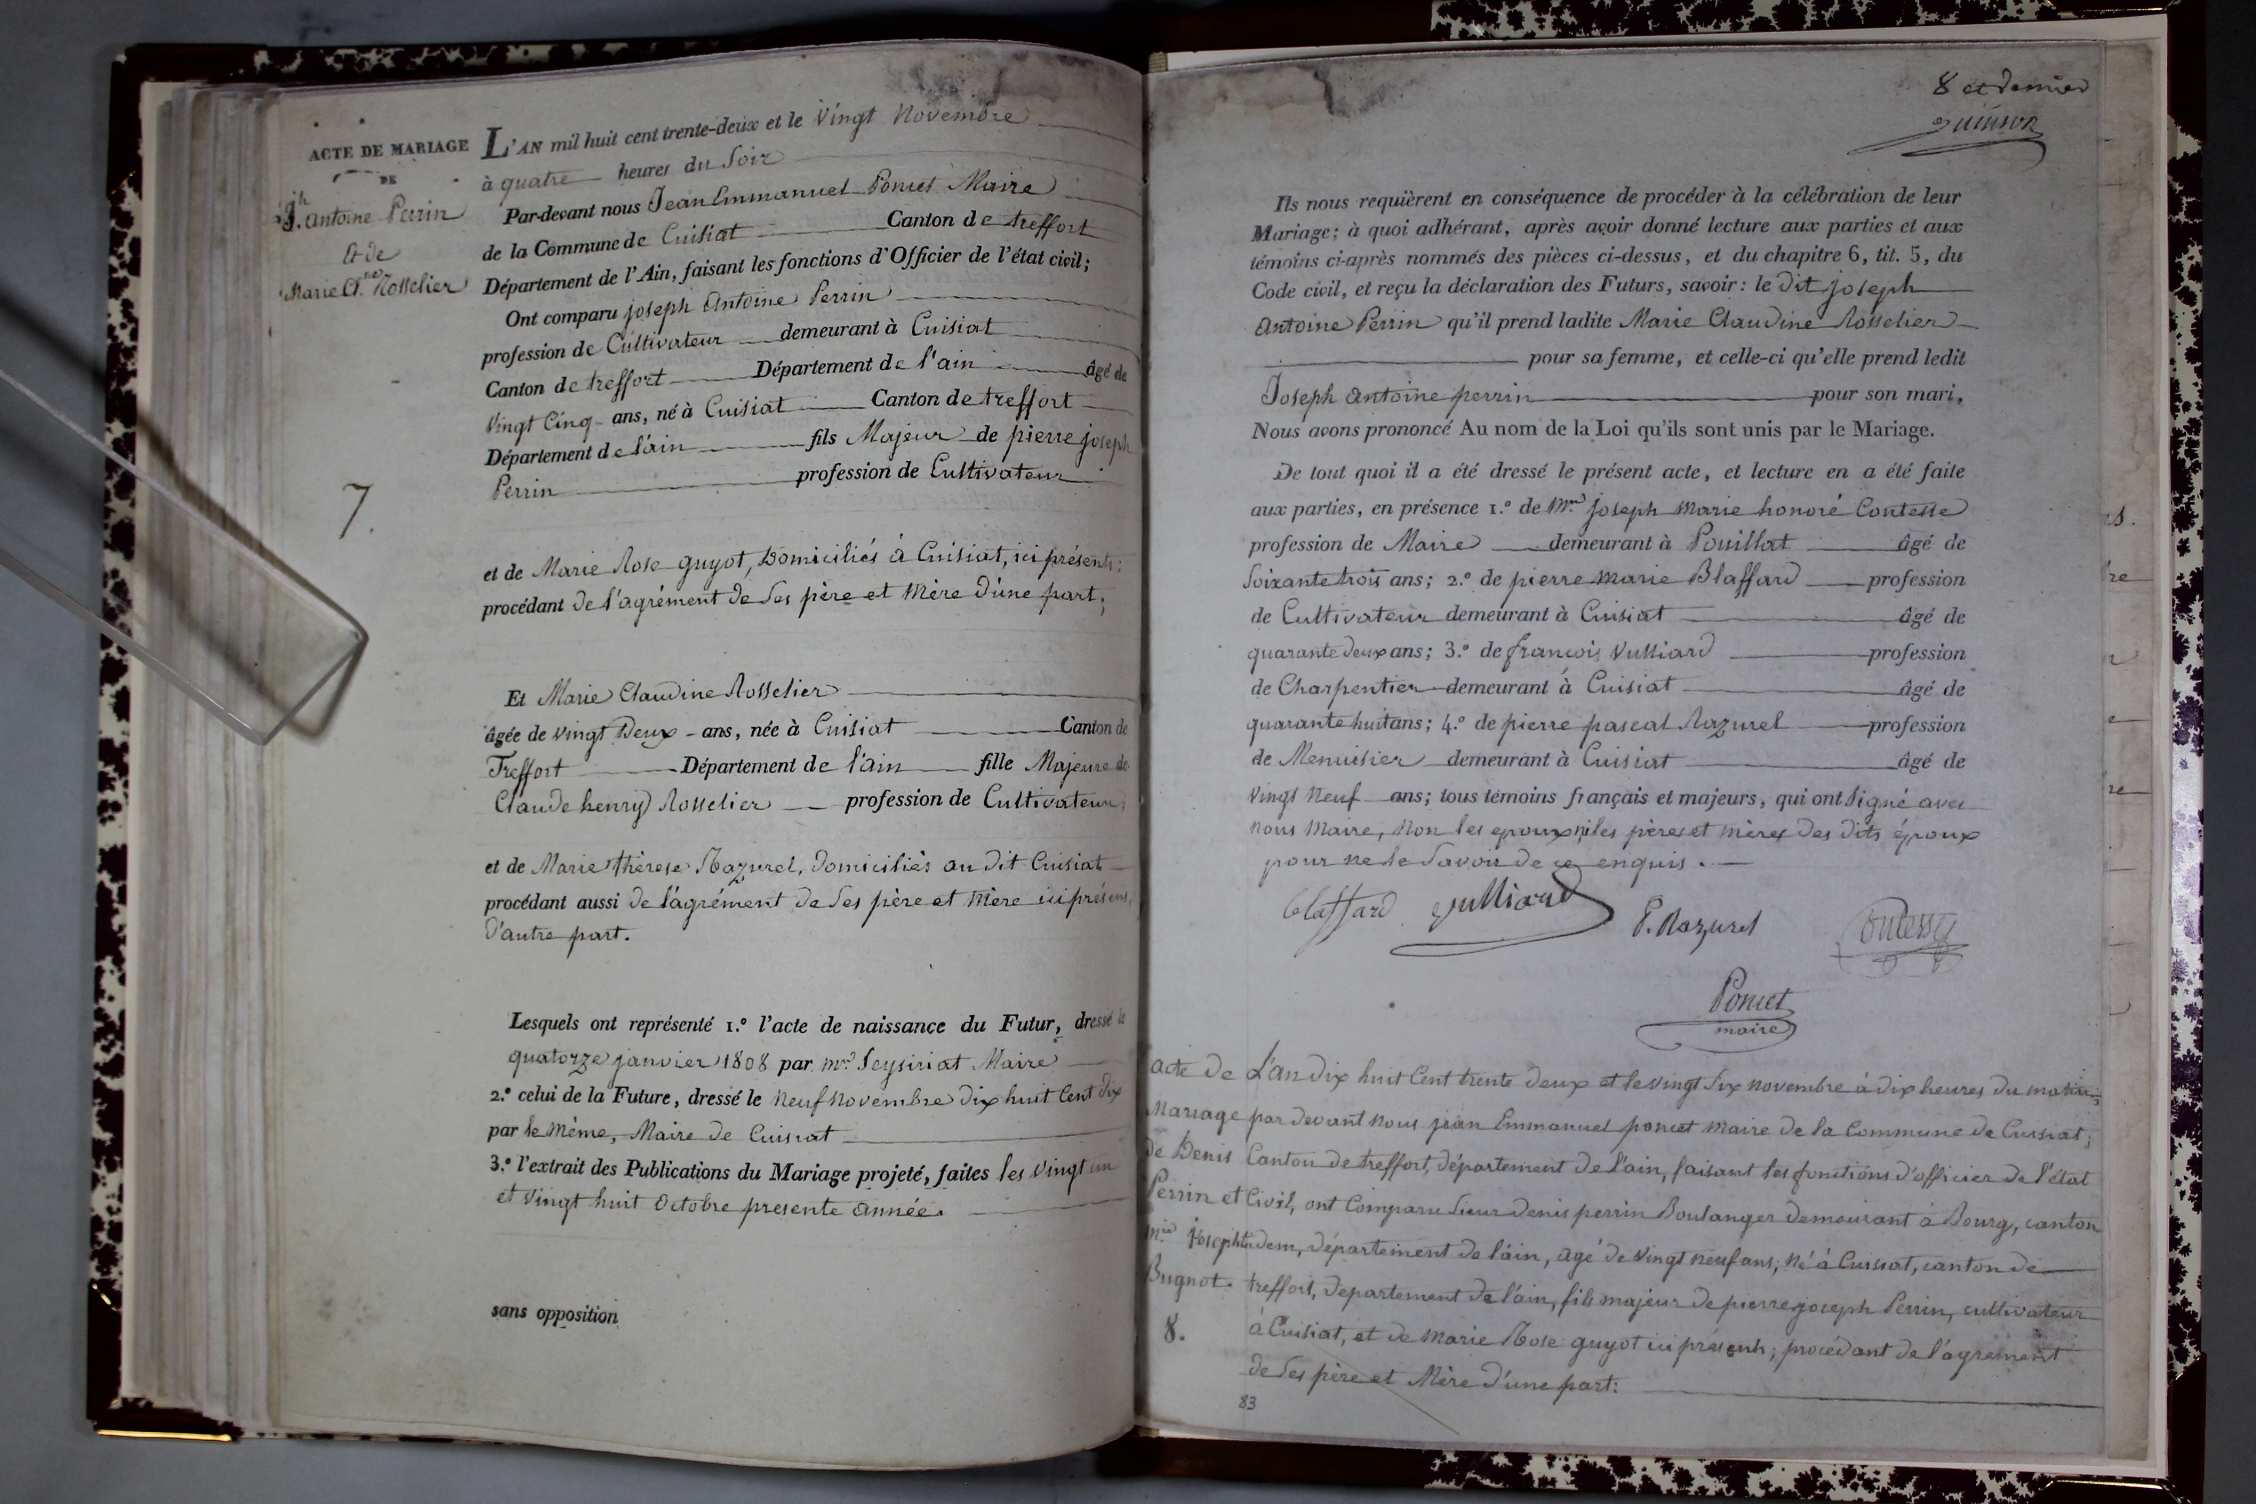 ACTE DE MARIAGE
DE
Jh. Antoine Perrin
Et de
Marie Cl.ne Rosselier
7.
L'AN mil huit cent trente-deux et le Vingt Novembre
à quatre heures du Soir
Par-devant nous Jean Emmanuel Poncet Maire
de la Commune de Cuisiat Canton de treffort
Département de l'Ain, faisant les fonctions d'Officier de l'état civil;
Ont comparu joseph Antoine Perrin
profession de Cultivateur demeurant à Cuisiat
Canton de treffort Département de l'ain âgé de
Vingt Cinq ans, né à Cuisiat Canton de treffort
Département de l'ain fils Majeur de pierre joseph
Perrin profession de Cultivateur
et de Marie Rose guyot, Domiciliés à Cuisiat, ici présents;
procédant de l'agrément de Ses père et Mère d'une part;
Et Marie Claudine Rosselier
âgée de Vingt Deux ans, née à Cuisiat Canton de
Treffort Département de l'ain fille Majeure de
Claude henry Rosselier profession de Cultivateur,
et de Marie thérese Razurel, Domiciliés au dit Cuisiat
procédant aussi de l'agrément de Ses père et Mère ici présens,
D'autre part.
Lesquels ont représenté 1.° l'acte de naissance du Futur, dressé le
quatorze janvier 1808 par mr. Seysiriat Maire
2.° celui de la Future, dressé le Neuf Novembre dix huit Cent dix
par le Même, Maire de Cuisiat
3.° l'extrait des Publications du Mariage projeté, faites les Vingt un
et Vingt huit Octobre presente année.
sans opposition
8 et dernier
Guinson
Ils nous requièrent en conséquence de procéder à la célébration de leur
Mariage; à quoi adhérant, après avoir donné lecture aux parties et aux
témoins ci-après nommés des pièces ci-dessus, et du chapitre 6, tit. 5, du
Code civil, et reçu la déclaration des Futurs, savoir: le Dit joseph
Antoine Perrin qu'il prend ladite Marie Claudine Rosselier
pour sa femme, et celle-ci qu'elle prend ledit
Joseph Antoine perrin pour son mari,
Nous avons prononcé Au nom de la Loi qu'ils sont unis par le Mariage.
De tout quoi il a été dressé le présent acte, et lecture en a été faite
aux parties, en présence 1.° de joseph Marie honoré Contesse
profession de Maire demeurant à Pouillat âgé de
Soixante trois ans; 2.° de pierre Marie Blaffard profession
de Cultivateur demeurant à Cuisiat âgé de
quarante deux ans; 3.° de françois Vulliard profession
de Charpentier demeurant à Cuisiat âgé de
quarante huit ans; 4.° de pierre pascal Razurel profession
de Menuisier demeurant à Cuisiat âgé de
Vingt Neuf ans; tous témoins français et majeurs, qui ont Signé avec
nous Maire, Non les epoux, ni les pères et mères Des dits époux
pour ne le Savoir de ce enquis.
Blaffard Vulliard P. Razurel Contesse
Poncet
maire
acte de
Mariage
de Denis
Perrin et
Josephte
Bugnot.
8.
L'An dix huit Cent trente deux et le vingt Six novembre à dix heures du matin;
par devant Nous jean Emmanuel poncet Maire de la Commune de Cuisiat,
Canton de treffort, département de l'ain, faisant les fonctions d'officier de l'état
Civil, ont Comparu Sieur Denis perrin Boulanger demeurant à Bourg, canton
dem, département de l'ain, agé de Vingt neuf ans; Né à Cuisiat, canton de
treffort, département de l'ain, fils majeur de pierre joseph Perrin, cultivateur
à Cuisiat, et de Marie Rose guyot ici présents; procédant de l'agrément
de Ses père et Mère d'une part:
83